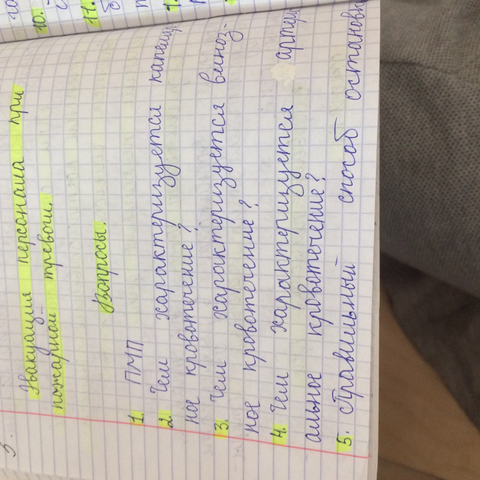 Эвакуация персонала при
пожарной тревоги.
Вопросы.
1. ПМП
2. Чем характеризуется капелл
ное кровотечение?
3. Чем характеризуется веноз-
ное кровотечение?
4. Чем характеризуется артери
альное кровотечение?
5. Правильный способ остановк
10.
11.